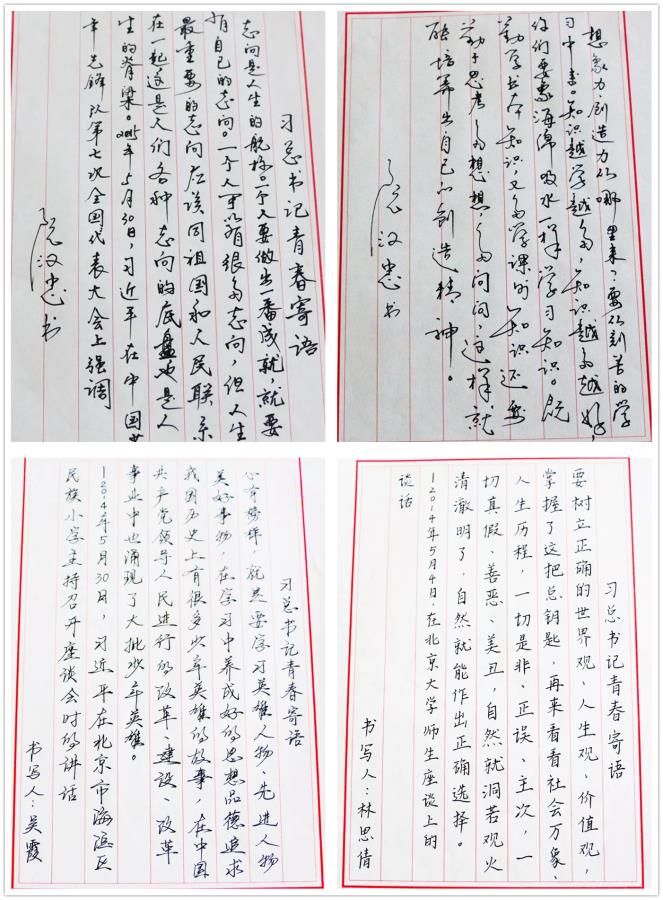 习总书记青春寄语
志向是人生的航标。一个人要做出一番成就，就要
有自己的志向。一个人可以有很多志向，但人生
最重要的志向应该同祖国和人民联系
在一起，这是人们各种志向的底盘，也是人
生的脊梁。2015年6月30日，习近平在中国
年先锋队第七次全国代表大会上强调
阮汉忠书
想象力、创造力从哪里来？要从刻苦的学
习中来。知识越学越多，知识越多越好，
你们要象海绵吸水一样学习知识。既
勤学书本知识，又多学课外知识，还要
勤于思考，多想想，多问问，这样就
能培养出自己的创造精神。
阮汉忠书
习总书记青春寄语
心有榜样，就是要学习英雄人物、先进人物
美好事物，在学习中养成好的思想品德追求
我国历史上有很多少年英雄的故事，在中国
共产党领导人民进行的改革、建设、改革
事业中也涌现了大批少年英雄。
|2014年5月30日，习近平在北京市海淀区
民族小学主持召开座谈会时的讲话
书写人：吴霞
习总书记青春寄语
要树立正确的世界观、人生观、价值观，
掌握了这把总钥匙，再来看看社会万象、
人生历程，一切是非、正误、主次，一
切真假、善恶、美丑，自然就洞若观火
清澈明了，自然就能作出正确选择。
|2014年5月4日，在北京大学师生座谈上的
谈话
书写人：林思倩